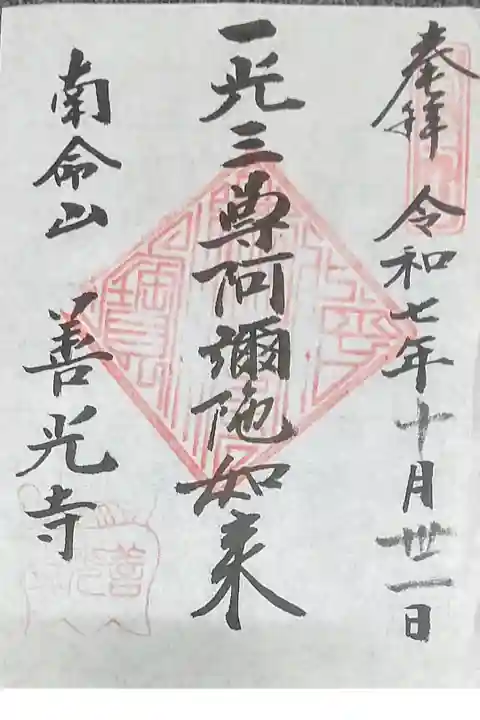 奉拝 令和七年十月卅一日
一光三尊阿彌陀如来
南命山 善光寺